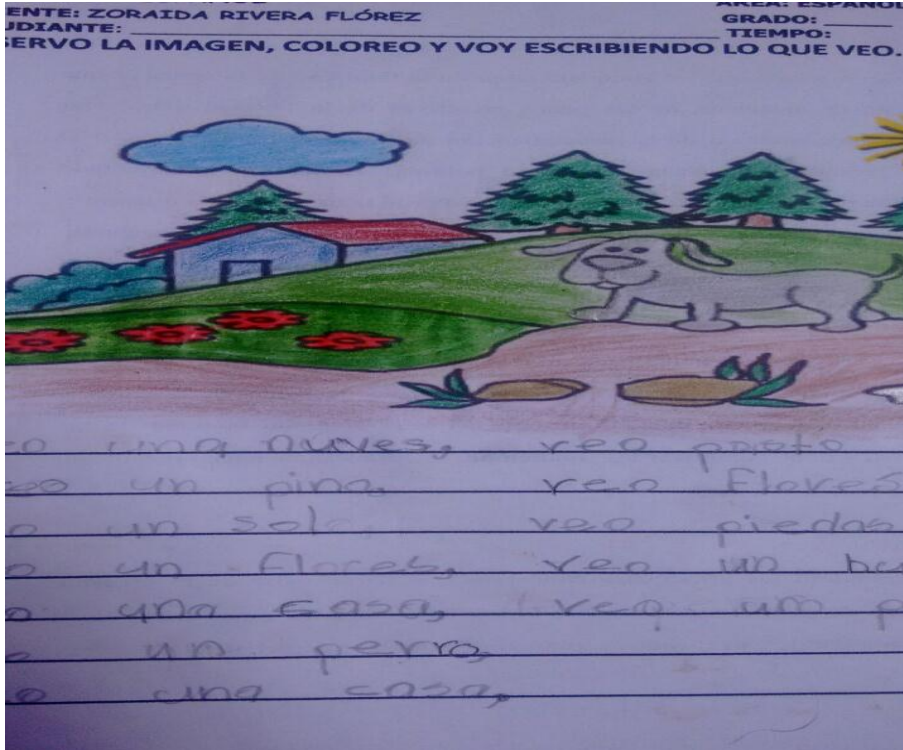 ENTE: ZORAIDA RIVERA FLÓREZ
ÁREA: ESPAÑOL
UDIANTE:
GRADO:
TIEMPO:
SERVO LA IMAGEN, COLOREO Y VOY ESCRIBIENDO LO QUE VEO.
eo una nuves, veo pasto
eo un pino, veo Flores
o un sol, veo piedas
o un Flores, veo un
o una casa, veo um p
o un perro,
o una casa,